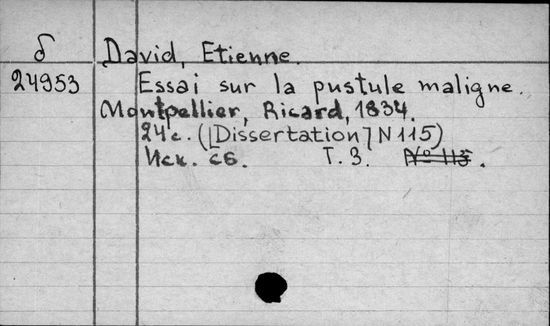 δ David, Etienne.
24953 Essai sur la pustule maligne.
Montpellier, Ricard, 1834.
24 с. ([Dissertation] N 115)
Иск. сб. T. 3. № 115.